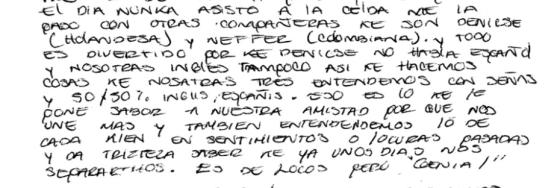 EL DIA NUNCA ASISTO A LA CELDA ME LA
PASO CON OTRAS COMPAÑERAS KE SON DENICSE
(HOLANDESA) y NEFFER (COLOMBIANA). y TODO
ES DIVERTIDO POR KE DENICSE NO HABLA ESPAÑOL
y NOSOTRAS INGLES TAMPOCO ASI KE HACEMOS
COSAS KE NOSATRAS TRES ENTENDEMOS CON SEÑAS
y 50/50% INGLIS, ESPAÑIS. ESO ES LO KE LE
PONE SABOR A NUESTRA AMISTAD POR QUE NOS
UNE MAS y TAMBIEN ENTENDENDEMOS LO DE
CADA KIEN EN SENTIMIENTOS O LOCURAS PASADAS
y DA TRIZTEZA SABER KE YA UNOS DIAS NOS
SEPARARTMOS. ES DE LOCOS PERO "GENIAL"